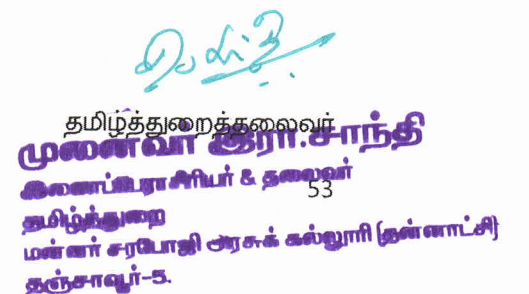 தமிழ்த்துறைத்தலைவர்
முனைவர் இரா.சாந்தி
இணைப்பேராசிரியர் & தலைவர்
53
தமிழ்த்துறை
மன்னர் சரபோஜி அரசுக் கல்லூரி (தன்னாட்சி)
தஞ்சாவூர்-5.